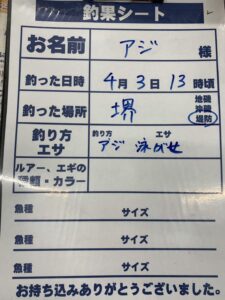 釣果シート
お名前 アジ 様
釣った日時 4月3日13時頃
釣った場所 堺 地磯 沖磯 堤防
釣り方 エサ 釣り方 エサ
アジ 泳がせ
ルアー、エギの
種類・カラー
魚種 サイズ
魚種 サイズ
魚種 サイズ
お持ち込みありがとうございました。